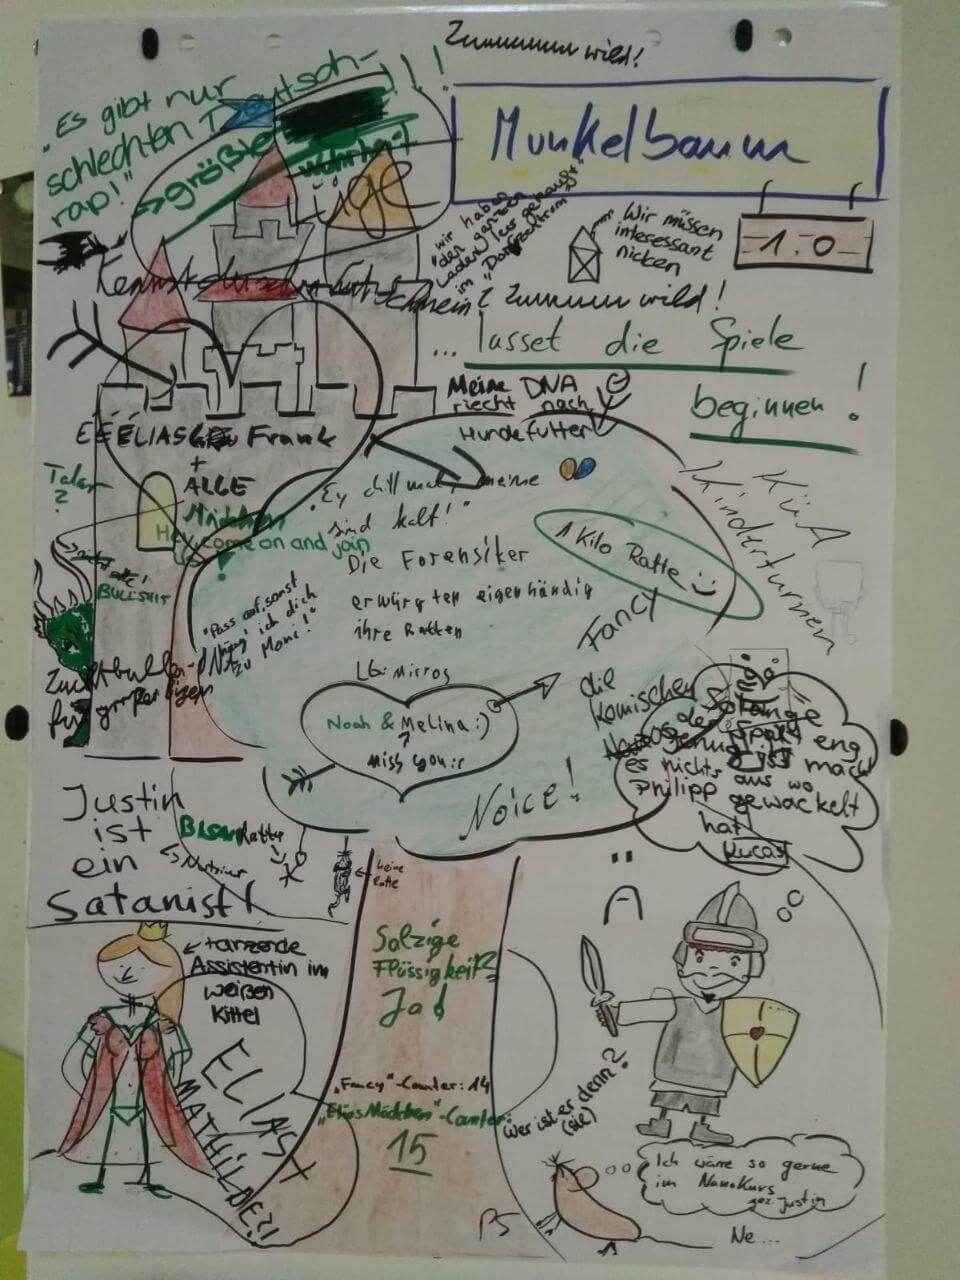 Zuuuuuuu wild!
"Es gibt nur
schlechten Deutsch-
rap!"
größte
Wahrheit
Lüge
Munkelbaum
"wir haben
den ganzen
Laden leer gekauft"
im
Wir müssen
interessant
nicken
1.0
Kennst du
Zuuuuuu wild!
... lasset die Spiele
beginnen!
Meine DNA
riecht nach
Hundefutter
Frank
+
ALGE
Mädchen
Hey come on and join
!
"Ey chill mal, meine
sind kalt!"
1 Kilo Ratte :)
KüA
Kinderturnen
Die Forensiker
erwürgten eigenhändig
ihre Ratten
LG: Micros
"Pass auf, sonst
ich dich
zu Mome!"
Taler
?
BULLSHIT
Zuchtbulle
für
Fancy
die
komischen
Noah & Melina :)
miss you :(
Noice!
Solange
der Spalt eng
genug ist macht
es nichts aus wo
Philipp gewackelt
hat
Lucas
Justin
ist
ein
Satanist!
Ratte
keine
Ratte
Ä
tanzende
Assistentin im
weißen
Kittel
ELIAS +
MATHILDE?!
Salzige
Flüssigkeit?
Ja!
"Fancy"-Counter: 14
"Elias Mädchen"-Counter:
15
Wer ist er denn?
(sie)
Ich wäre so gerne
im NanoKurs
gez. Justin
Ne...